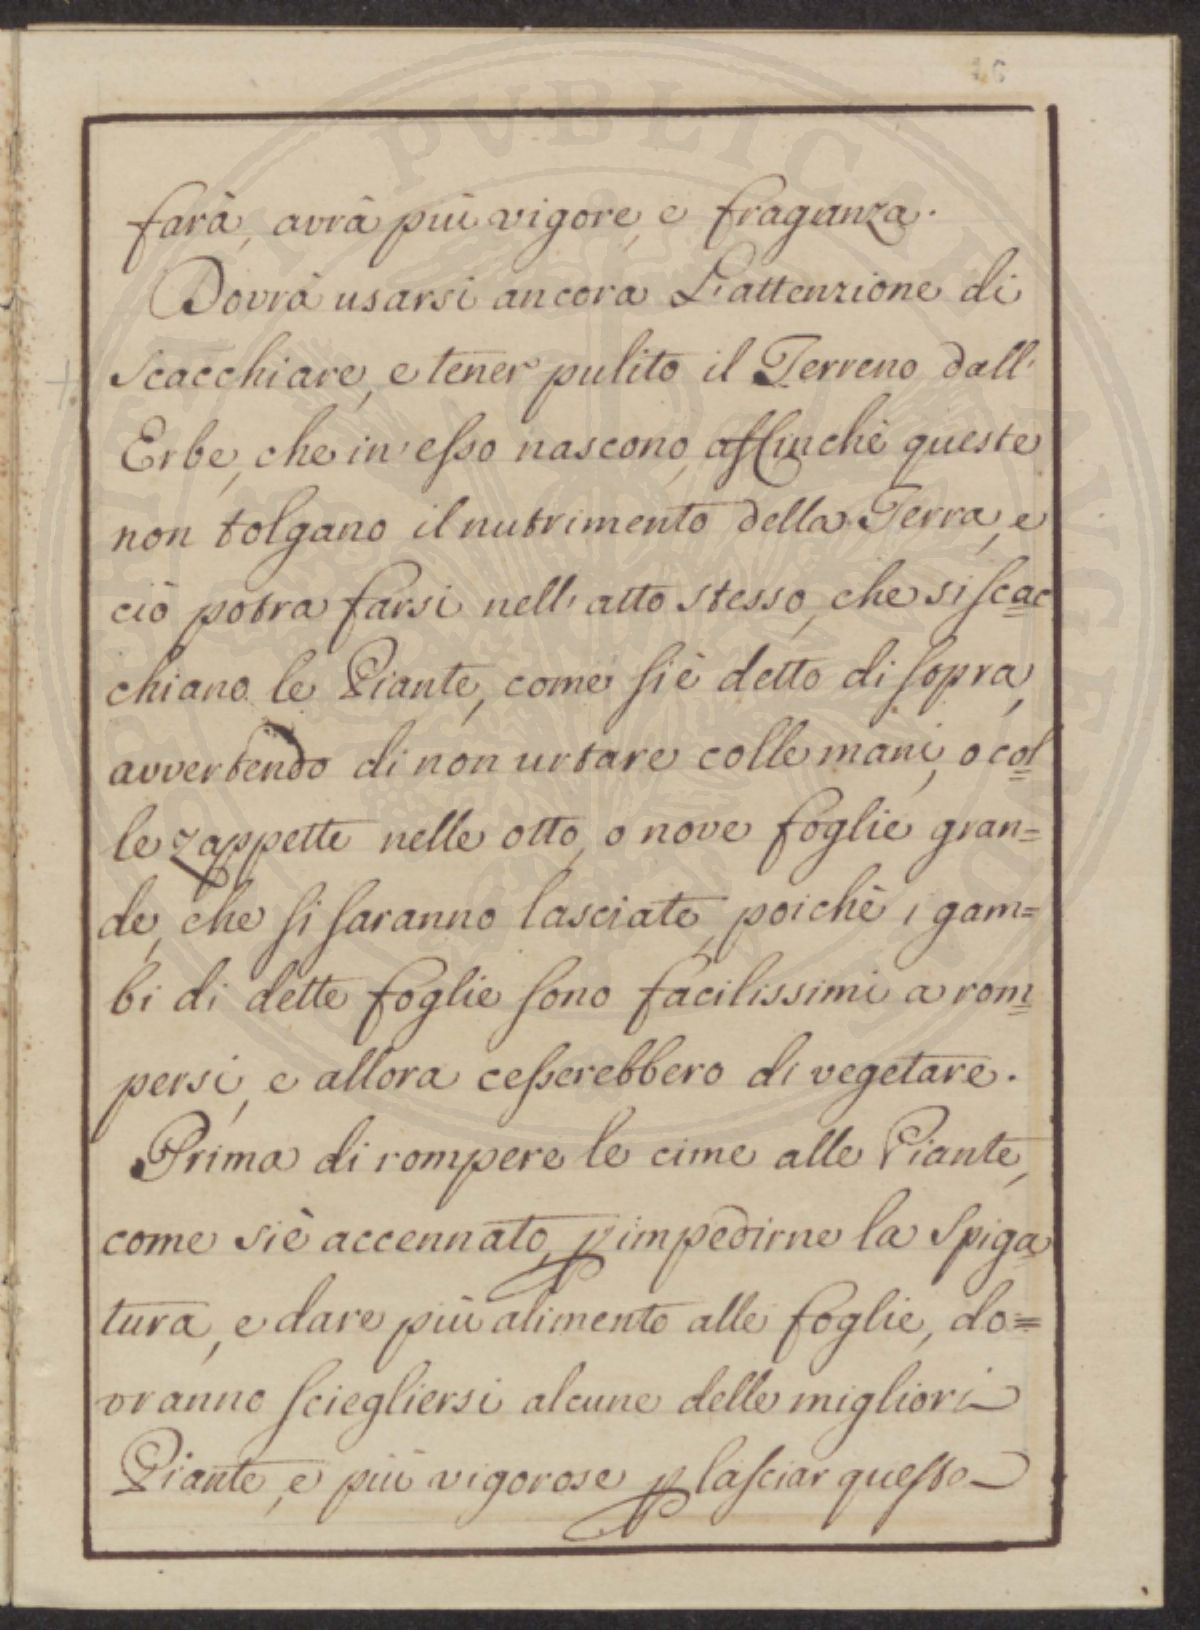 farà, avrà più vigore, e fraganza.
Dovrà usarsi ancora L'attenzione di
scacchiare, e tener pulito il Terreno dall'
Erbe, che in' esso nascono, affinchè queste
non tolgano il nutrimento della Terra, e
ciò potra farsi nell' atto stesso, che si scac
chiano le Piante, come si è detto di sopra,
avvertendo di non urtare colle mani, o col
le zappette nelle otto, o nove foglie gran=
de, che si saranno lasciate, poichè i gam=
bi di dette foglie sono facilissimi a rom=
persi, e allora cesserebbero di vegetare.
Prima di rompere le cime alle Piante,
come si è accennato, p impedirne la Spiga
tura, e dare più alimento alle foglie, do=
vranno sciegliersi alcune delle migliori
Piante, e più vigorose p lasciar queste